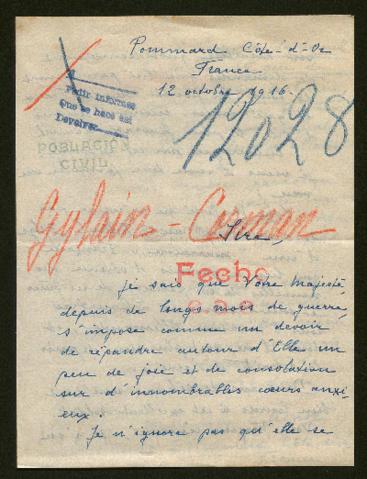 Pommard Côte-d'Or
France
12 octobre 1916.
Pedir informes
Que se hace así
Devolver
12028
POBLACIÓN
CIVIL
Gylain - Corman
Sire,
Fecho
je sais que Votre Majesté,
depuis de longs mois de guerre,
s'impose comme un devoir
de répandre autour d'Elle un
peu de joie et de consolation
sur d'innombrables cœurs anxi-
eux.
Je n'ignore pas qu'elle se